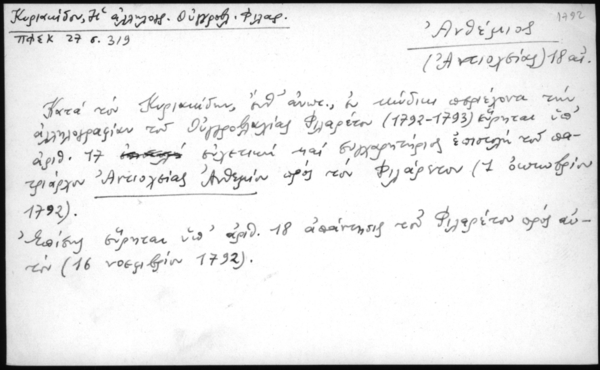 Κυριακίδου, Ἡ ἀλληλογρ. Οὐγγροβλ. Φιλαρ.
ΠΦΣΚ 27 σ. 319
1792
Ἀνθέμιος
(Ἀντιοχείας) 18 αἰ.
Κατὰ τὸν Κυριακίδην, ἔνθ' ἀνωτ., ἐν κώδικι περιέχοντι τὴν
ἀλληλογραφίαν τοῦ Οὐγγροβλαχίας Φιλαρέτου (1792-1793) εὕρηται ὑπ'
ἀριθ. 17 σχετικὴ καὶ συγχαρητήριος ἐπιστολὴ τοῦ πα-
τριάρχου Ἀντιοχείας Ἀνθεμίου πρὸς τὸν Φιλάρετον (1 ὀκτωβρίου
1792).
Ἐπίσης εὕρηται ὑπ' ἀριθ. 18 ἀπάντησις τοῦ Φιλαρέτου πρὸς αὐ-
τόν (16 νοεμβρίου 1792).